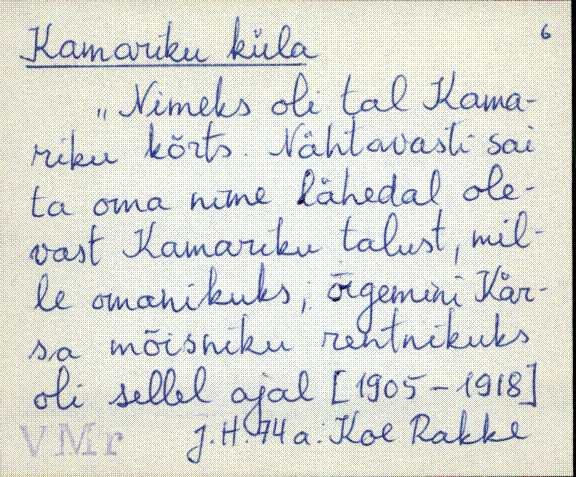 6
Kamariku küla
„Nimeks oli tal Kama-
riku kõrts. Nähtavasti sai
ta oma nime lähedal ole-
vast Kamariku talust, mil-
le omanikuks, õigemini Kär-
sa mõisniku rentnikuks
oli sellel ajal [1905–1918]
J.H. 74 a. Koe Rakke
VMr